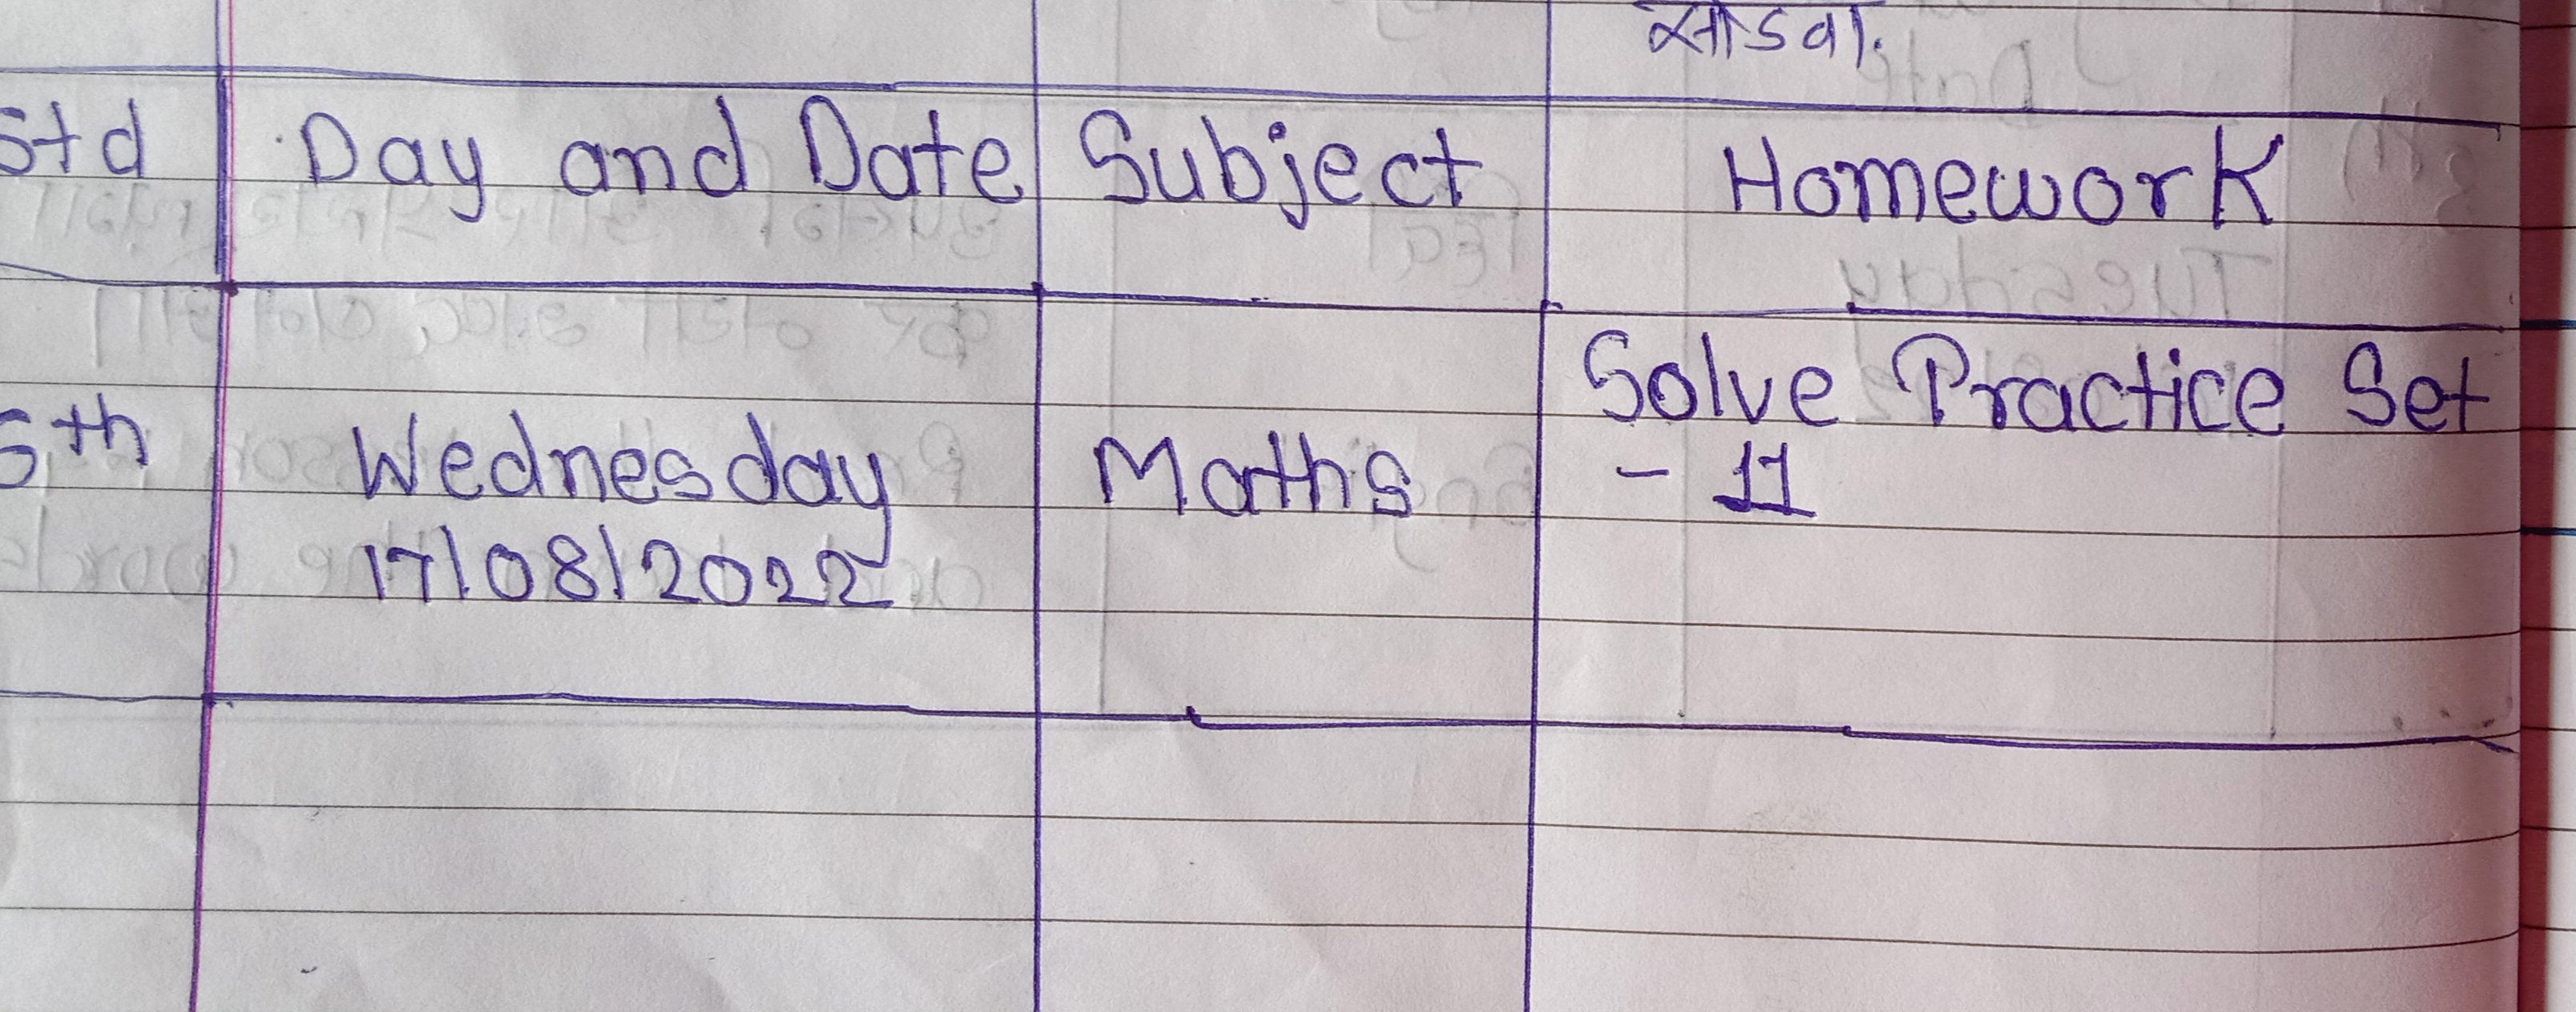 सोडवा.
Std Day and Date Subject Homework
Solve Practice Set
5th Wednesday Maths - 11
17/08/2022